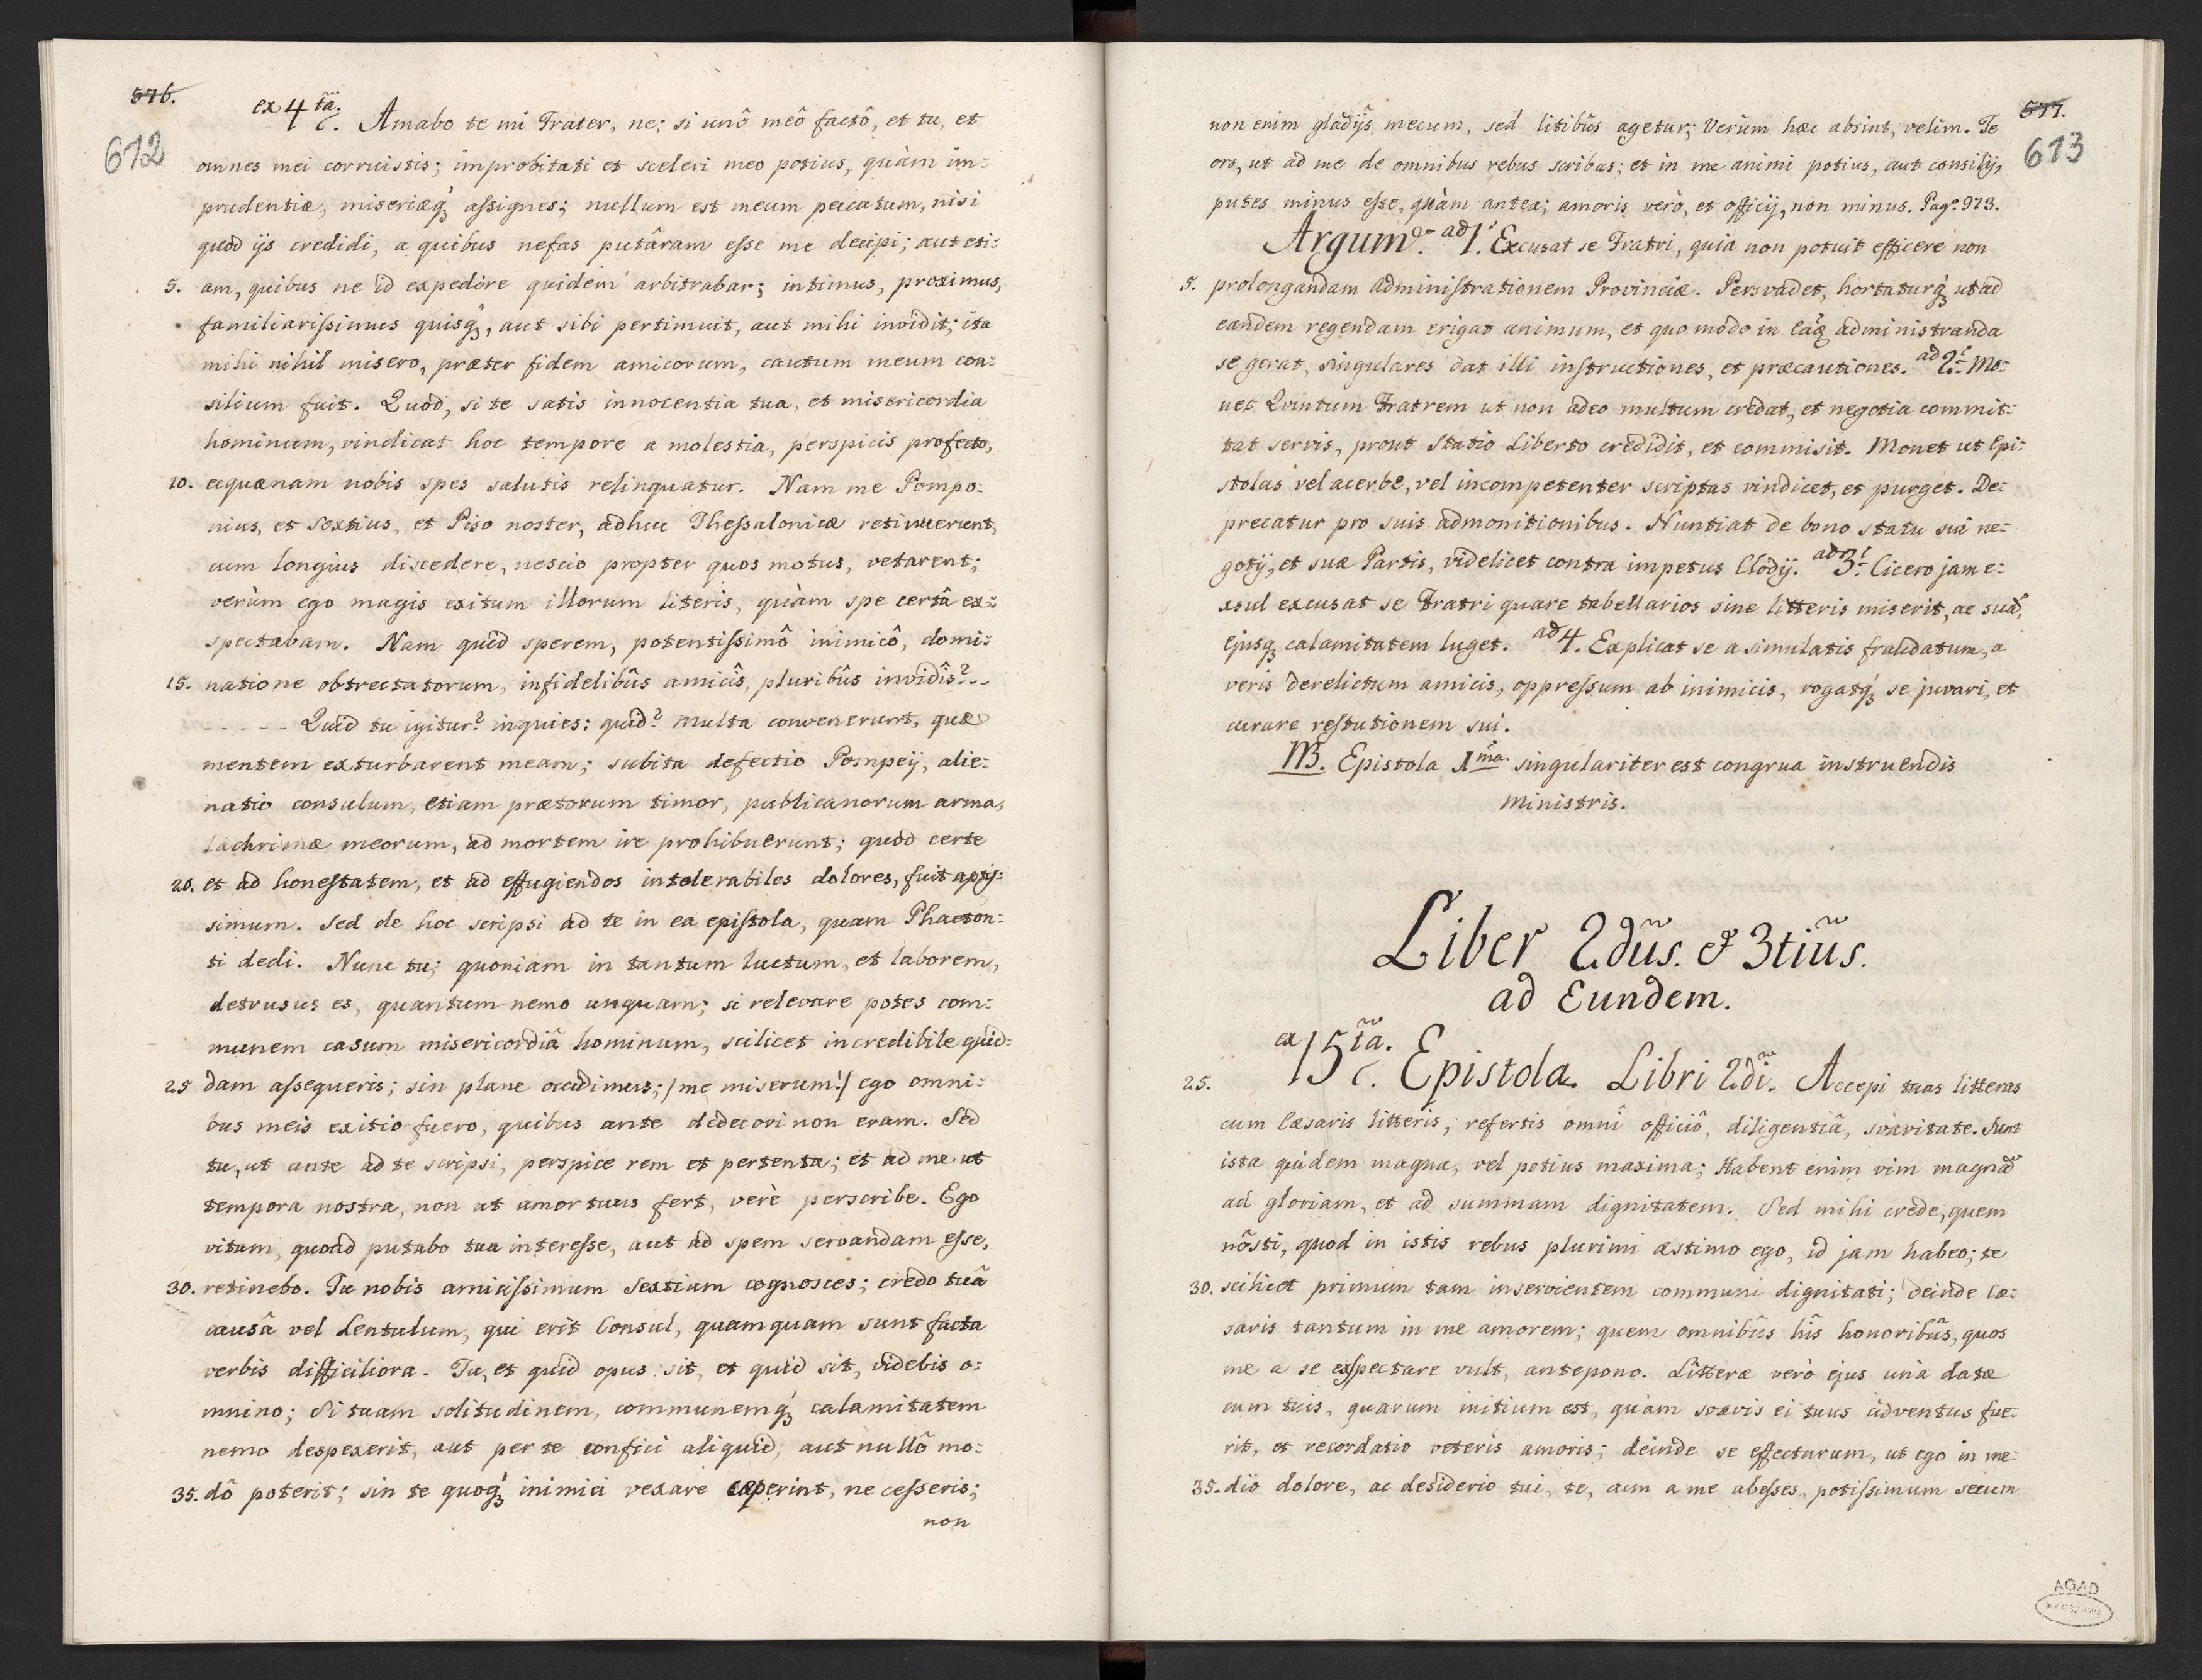 576.
612
ex 4tã. Amabo te mi Frater, ne; si unô meô factô, et tu, et
omnes mei corruistis; improbitati et sceleri meo potius, quàm im=
prudentiæ, miseriæq́ꝫ aſsignes; nullum est meum peccatum, nisi
quod ijs credidi, a quibus nefas putâram eſse me decipi; aut eti=
5. am, quibus ne id expedire quidem arbitrabar; intimus, proximus,
familiariſsimus quisq́ꝫ, aut sibi pertimuit, aut mihi invidit; ita
mihi nihil misero, præter fidem amicorum, cautum meum con=
silium fuit. Quod, si te satis innocentia tua, et misericordia
hominum, vindicat hoc tempore a molestia, perspicis profecto,
10. ecquænam nobis spes salutis relinquatur. Nam me Pompo=
nius, et Sextius, et Piso noster, adhuc Theſsalonicæ retinuerunt,
cum longius discedere, nescio propter quos motus, vetarent;
verùm ego magis exitum illorum literis, quàm spe certâ ex=
spectabam. Nam quid sperem, potentiſsimô inimicô, domi=
15. natione obtrectatorum, infidelibûs amicîs, pluribûs invidîs?--
----- Quid tu igitur? inquies: quid? multa convenerunt, quæ
mentem exturbarent meam; subita defectio Pompeij, alie=
natio consulum, etiam prætorum timor, publicanorum arma,
Lachrimæ meorum, ad mortem ire prohibuerunt; quod certe
20. et ad honeſtatem, et ad effugiendos intolerabiles dolores, fuit aptiſ=
simum. Sed de hoc scripsi ad te in ea epiſtola, quam Phaeton=
ti dedi. Nunc tu; quoniam in tantum luctum, et laborem,
detrusus es, quantum nemo unquam; si relevare potes com=
munem casum misericordiâ hominum, scilicet incredibile quid=
25 dam aſsequeris; sin plane occidimus; /me miserum!/ ego omni=
bus meis exitio fuero, quibus ante dedecori non eram. Sed
tu, ut ante ad te scripsi, perspice rem et pertenta; et ad me ut
tempora nostra, non ut amor tuus fert, verè perscribe. Ego
vitam, quoad putabo tua intereſse, aut ad spem servandam eſse,
30. retinebo. Tu nobis amiciſsimum Sextium cognosces; credo tuâ
causâ vel Lentulum, qui erit Consul, quamquam sunt facta
verbis difficiliora. Tu, et quid opus sit, et quid sit, videbis o=
mnino; Si tuam solitudinem, communemq́ꝫ calamitatem
nemo despexerit, aut per te confici aliquid, aut nullô mo=
35. dô poterit; sin te quoq́ꝫ inimici vexare cæperint, ne ceſseris;
non
577.
613
non enim gladijs mecum, sed litibûs agetur; Verùm hæc absint, velim. Te
oro, ut ad me de omnibus rebus scribas; et in me animi potius, aut consilij,
putes minus eſse, quàm antea; amoris verò, et officij, non minus. Pag: 973.
Argumᵗᵒ. ad 1. Excusat se Fratri, quia non potuit efficere non
5. prolongandam adminiſtrationem Provinciæ. Persvadet, hortaturq́ꝫ ut ad
eandem regendam erigat animum, et quo modo in eaq́ꝫ administranda
se gerat, singulares dat illi inſtructiones, et præcautiones. ad 2. Mo=
net Quintum Fratrem ut non adeo multum credat, et negotia commit=
tat servis, prout Statio Liberto credidit, et commisit. Monet ut Epi=
stolas vel acerbe, vel incompetenter scriptas vindicet, et purget. De=
precatur pro suis admonitionibus. Nuntiat de bono statu sui ne=
gotij, et suæ Partis, videlicet contra impetus Clodij. ad 3. Cicero jam e=
xsul excusat se Fratri quare tabellarios sine litteris miserit, ac suã,
Ejusq́ꝫ calamitatem luget. ad 4. Explicat se a simulatis fraudatum, a
veris derelictum amicis, oppreſsum ab inimicis, rogatq́ꝫ se juvari, et
curare reſtutionem sui.
NB. Epistola 1ma. singulariter est congrua instruendis
ministris.
Liber 2dũs. et 3tiũs.
ad Eundem.
25. ex 15tã. Epistola. Libri 2di. Accepi tuas litteras
cum Cæsaris litteris, refertis omni officiô, diligentiâ, svavitate. Sunt
ista quidem magna, vel potius maxima; Habent enim vim magnã
ad gloriam, et ad summam dignitatem. Sed mihi crede, quem
nôsti, quod in istis rebus plurimi æstimo ego, id jam habeo; te
30. scilicet primum tam inservientem communi dignitati; deinde Cæ=
saris tantum in me amorem; quem omnibûs hîs honoribûs, quos
me a se exſpectare vult, antepono. Litteræ verò ejus unà datæ
cum tuis, quarum initium est, quàm svavis ei tuus adventus fue=
rit, et recordatio veteris amoris; deinde se effecturum, ut ego in me=
35. dio dolore, ac desiderio tui, te, cum a me abeſses, potiſsimum secum
AGAD
WARSZAWA